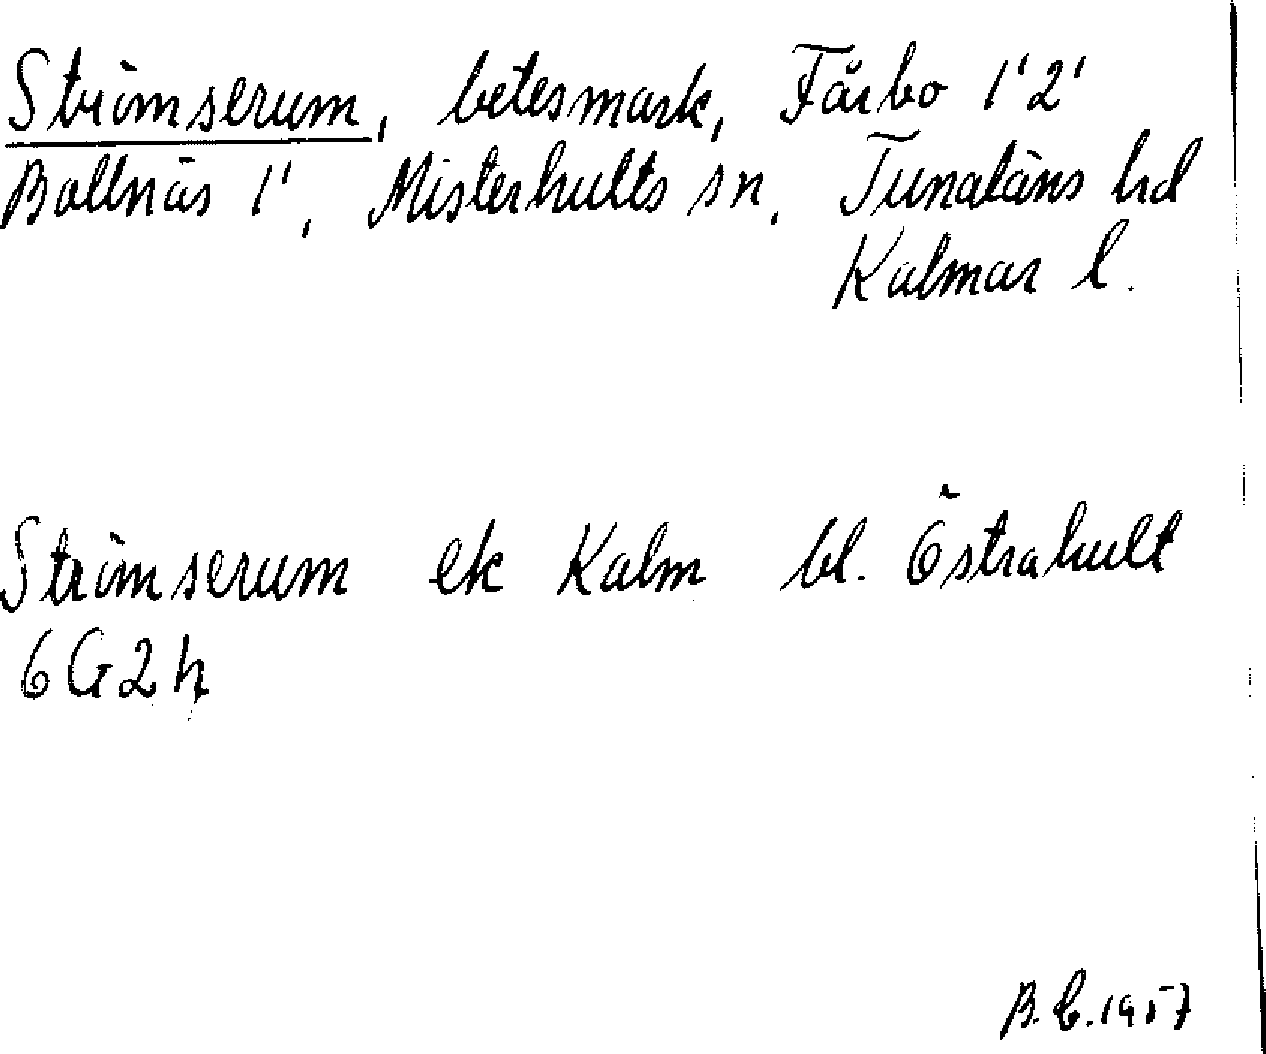 Strömserum, betesmark, Fårbo 1'2'
Bållnäs 1', Misterhults sn, Tunaläns hd
Kalmar l.
Strömserum ek Kalm bl. Östrahult
6G2h
B.C.1957